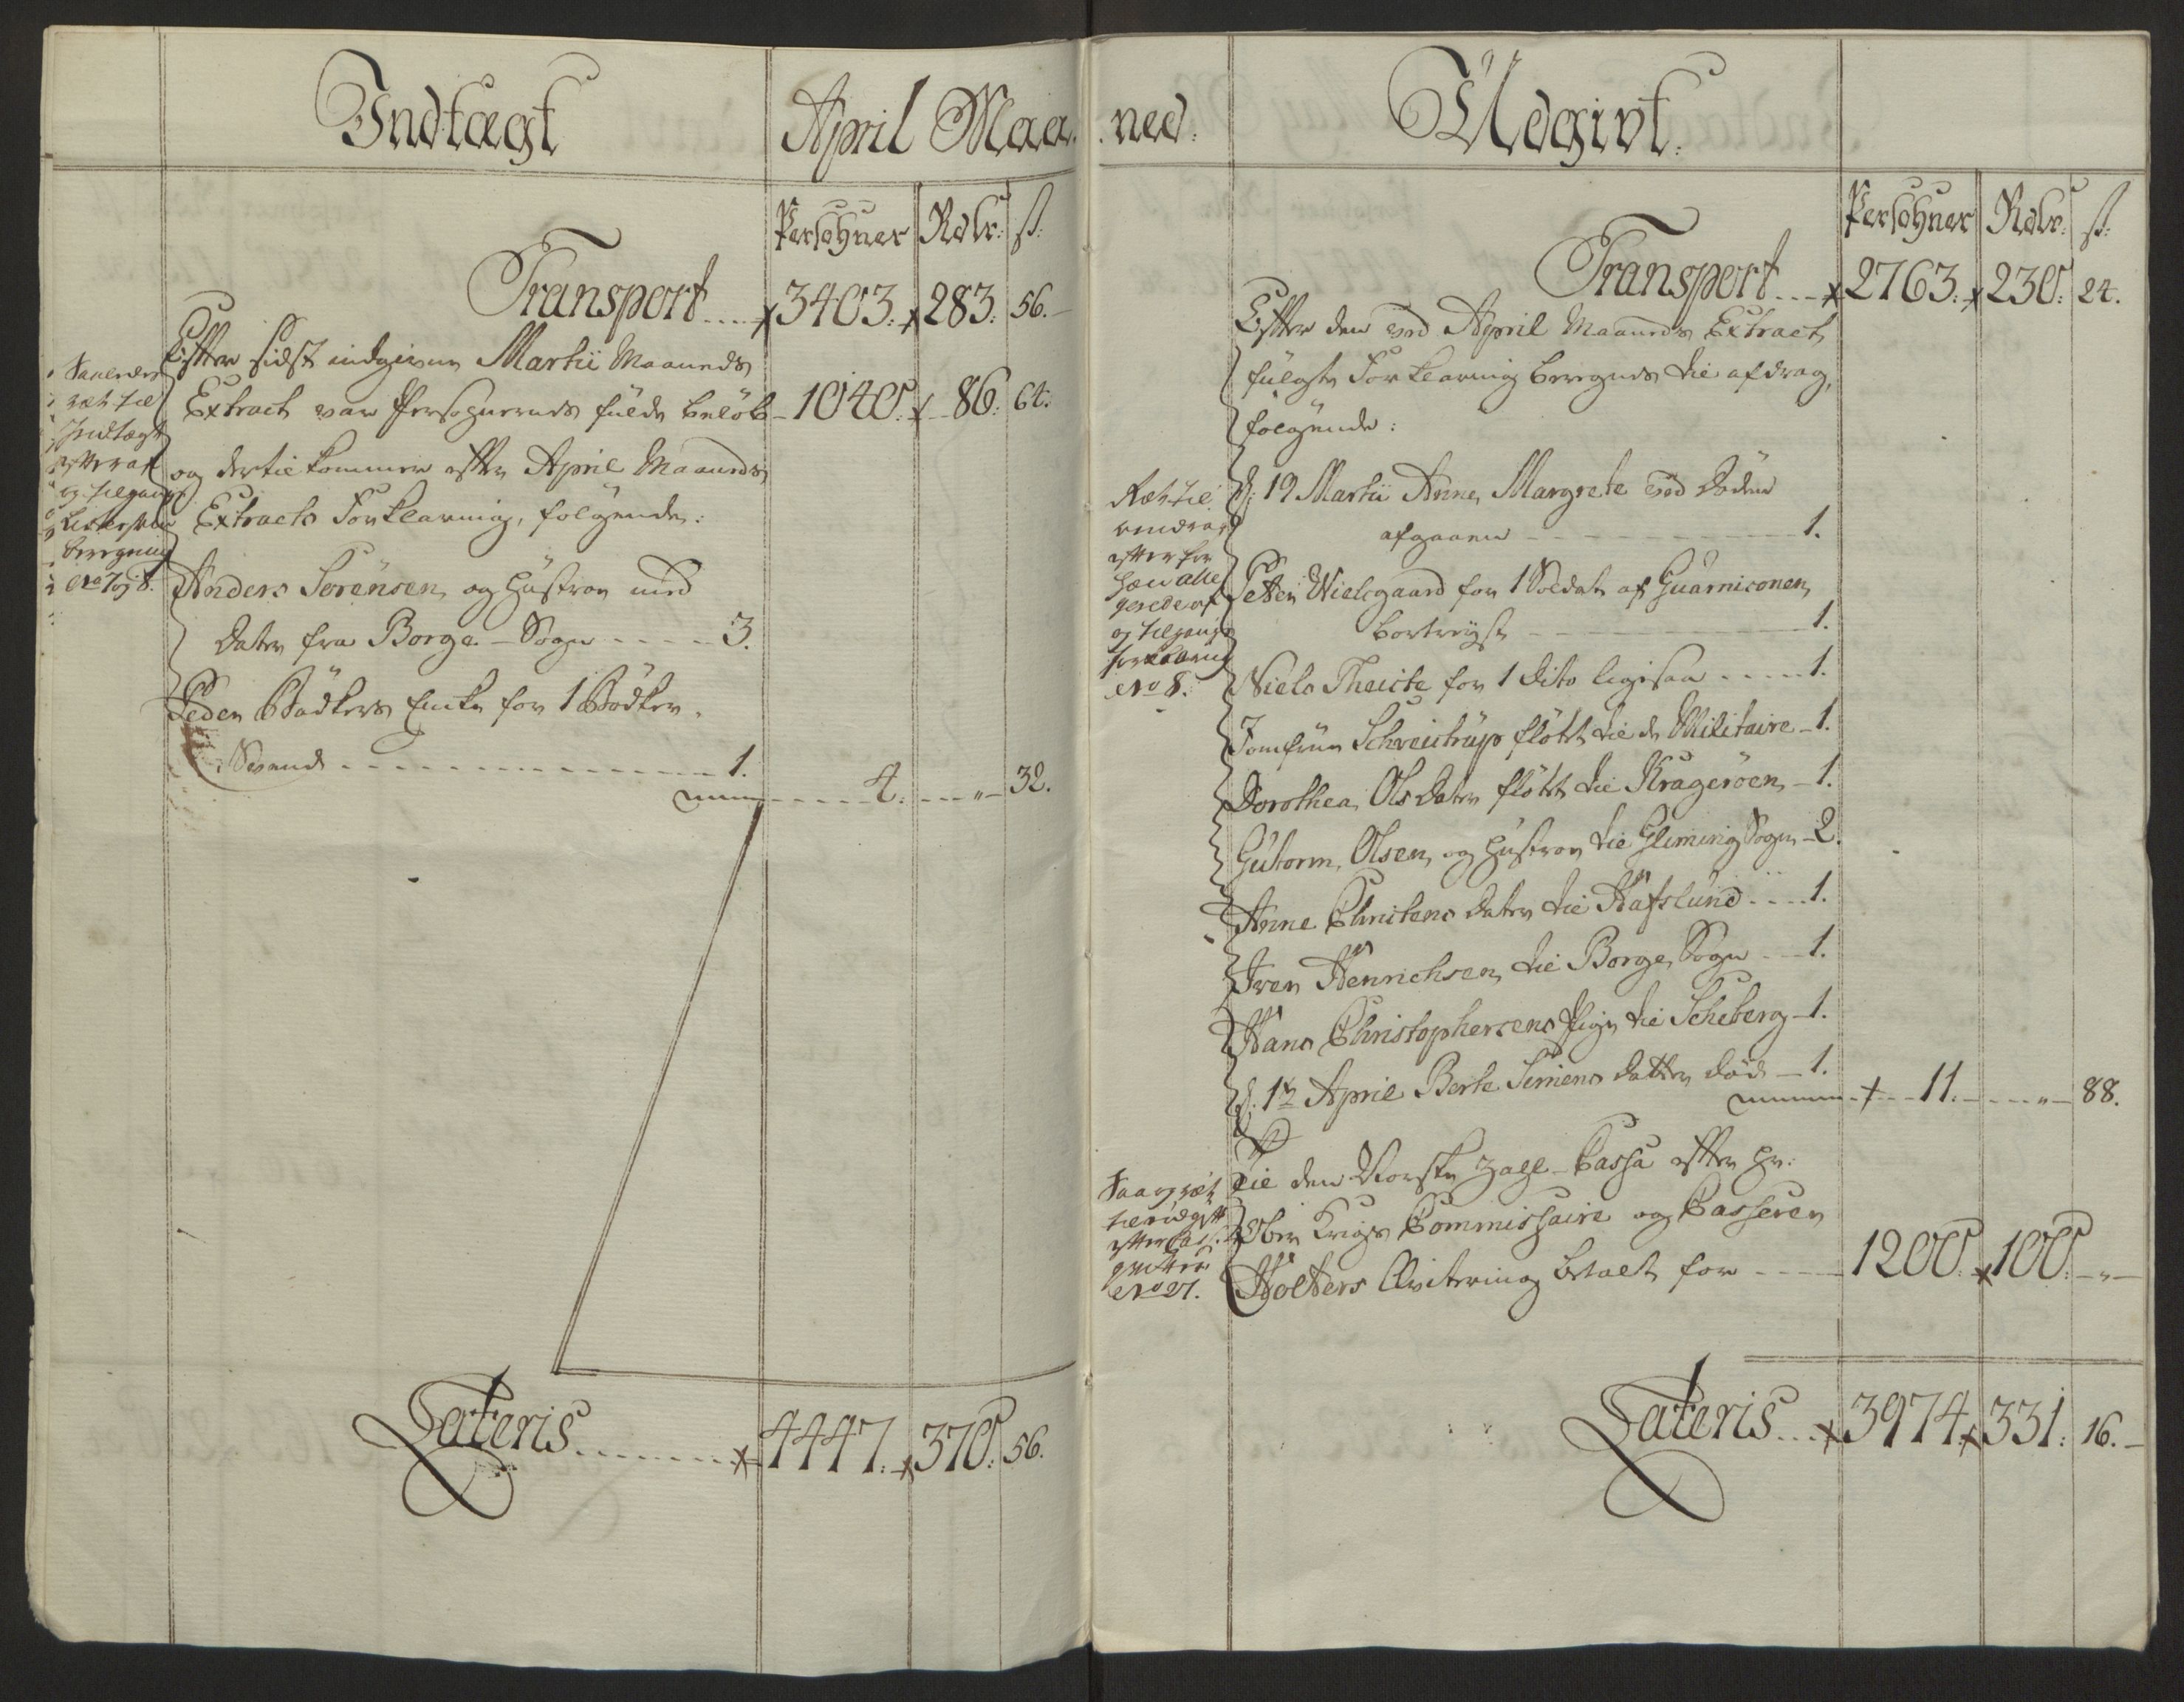 Indtægt April Maa
Persohner Rdlr: ß:
Transport 3403. 283. 56.
Effter sidst indgivne Martii Maaneds
Extract var Persohnernes fulde beløb 1040. 86. 64.
og dertil kommer effter April Maaneds
Extracts Forklaring, følgende:
Anders Sørensen og Hustroe med
Dater fra Borge Sogn 3.
Peder Bødkers Encke for 1 Bødker
Svend 1.
4. " 32.
Lateris 4447. 370. 56.
ræt til
Indtægt
efter af
og tilgangs
beregning
No 7 og 8.
ned. Udgivt.
Persohner Rdlr: ß:
Transport 2763. 230. 24.
Effter den ved April Maaneds Extract
fulgte Forklaring beregnes til afdrag,
følgende:
d: 19 Martii Anne Margrete ved Døden
afgaaen 1.
Peter Wielsgaard for 1 Soldat af Guarnisonen
bortreyst 1.
Niels Theiste for 1 dito ligesaa 1.
Jomfrue Schweitrup fløtt til de Militaire 1.
Dorothea Ols Dater fløtt til Kragerøen 1.
Gutorm Olsen og Hustroe til Glemmig Sogn 2.
Anne Christens Dater til Hafslund 1.
Iver Henrichsen til Borge Sogn 1.
Hans Christophersens Pige til Scheberg 1.
d. 12 April Berte Simens Datter død 1.
11. " 88.
Til den Norske Zahl-Cassa efter Hr:
Ober Krigs Commissaire og Casserer
Holters Qvitering betalt for 1200. 100. "
Lateris 3974. 331. 16.
Ræt til
efter for
og tilgangs
forklaring
No 8.
Saa og ræt
til udgift
efter
No 21.